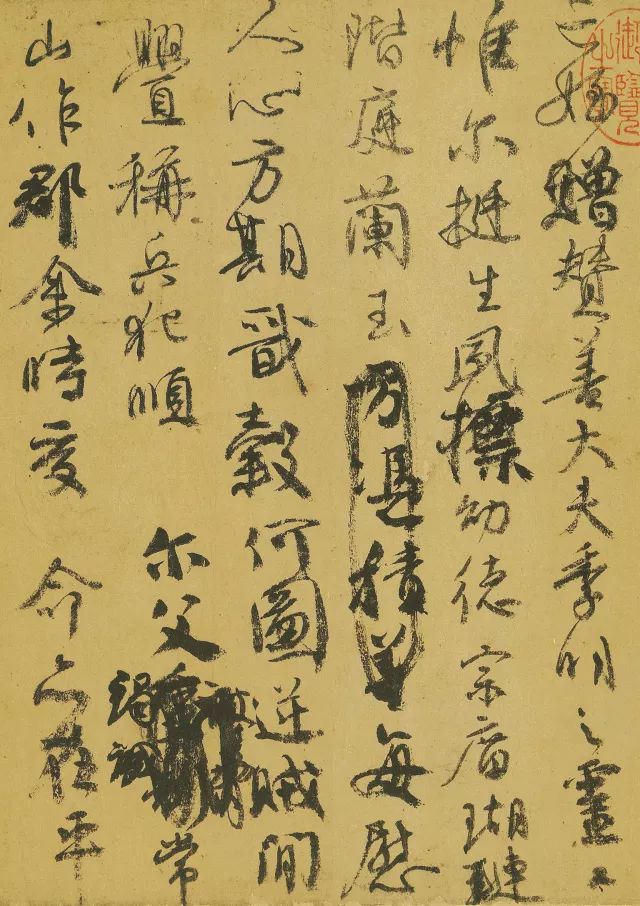 亡姪贈贊善大夫季明之靈曰
惟尔挺生夙標幼德宗廟瑚璉
階庭蘭玉方憑積善每慰
人心方期戩穀何圖逆賊閒
舋稱兵犯順尔父竭誠常
山作郡余時受命亦在平